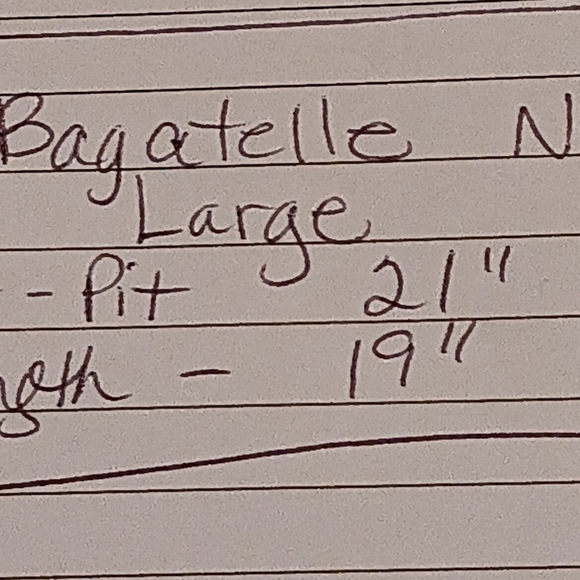 Bagatelle N
Large
- Pit 21"
ngth - 19"